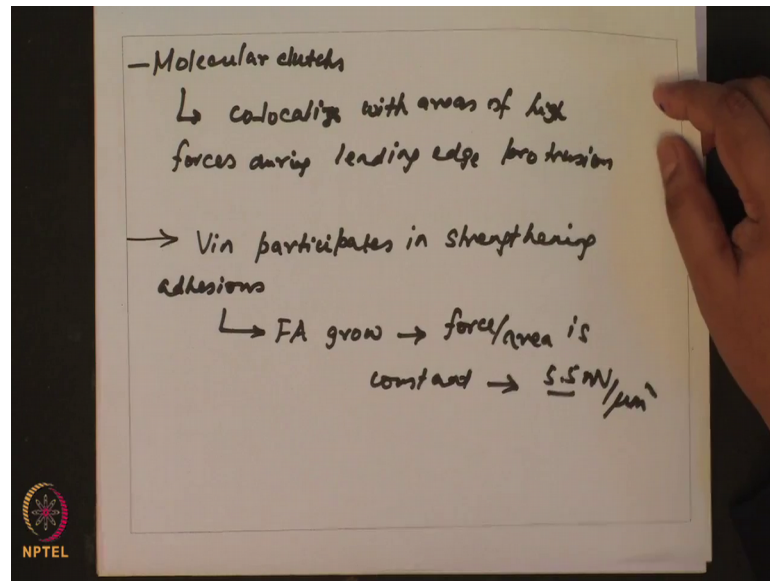 — Molecular clutchs
↳ colocalize with areas of high
forces during leading edge protrusion
→ Vin participates in strengthening
adhesions
↳ FA grow → force/area is
constant → 5.5 nN/μm²
NPTEL